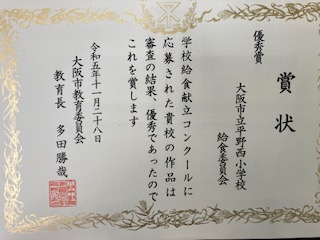 賞状
優秀賞
大阪市立平野西小学校
給食委員会
学校給食献立コンクールに
応募された貴校の作品は
審査の結果、優秀であったので
これを賞します
令和五年十一月二十八日
大阪市教育委員会
教育長 多田勝哉